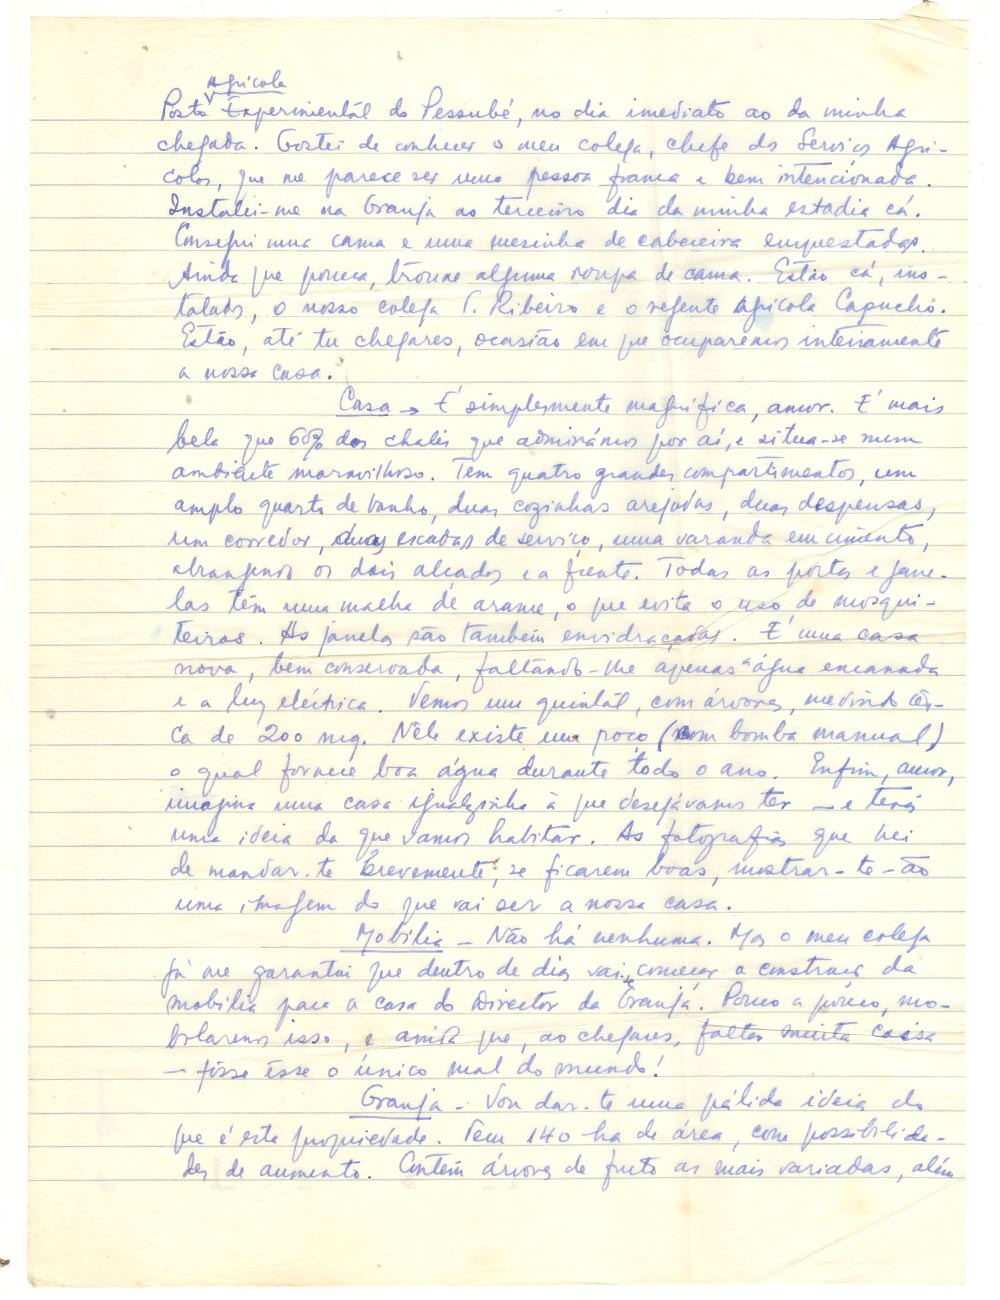 Agrícola
Posto Experimentál do Pessubé, no dia imediato ao da minha
chegada. Gostei de conhecer o meu colega, chefe dos Serviços Agrí-
colas, que me parece ser uma pessoa franca e bem intencionada.
Instalei-me na Granja ao terceiro dia da minha estadia cá.
Consegui uma cama e uma mesinha de cabeceira emprestadas.
Ainda que pouca, trouxe alguma roupa de cama. Estão cá, ins-
talados, o nosso colega S. Ribeiro e o regente agrícola Capucho.
Estão, até tu chegares, ocasião em que ocuparemos inteiramente
a nossa casa.
Casa → É simplesmente magnífica, amor. É mais
bela que 60% dos chalés que admirámos por aí, e situa-se num
ambiente maravilhoso. Tem quatro grandes compartimentos, um
amplo quarto de banho, duas cozinhas arejadas, duas despensas,
um corredor, duas escadas de serviço, uma varanda em cimento,
abrangendo os dois alçados e a frente. Todas as portas e jane-
las têm uma malha de arame, o que evita o uso de mosqui-
teiros. As janelas são também envidraçadas. É uma casa
nova, bem conservada, faltando-lhe apenas a água encanada
e a luz eléctrica. Temos um quintál, com árvores, medindo cêr-
ca de 200 mq. Nêle existe um poço (com bomba manual)
o qual fornece boa água durante todo o ano. Enfim, amor,
imagina uma casa igualzinha à que desejávamos ter — e terás
uma ideia da que vamos habitar. As fotografias que hei
de mandar-te brevemente, se ficarem boas, mostrar-te-ão
uma imagem do que vai ser a nossa casa.
Mobília — Não há nenhuma. Mas o meu colega
já me garantiu que dentro de dias vai começar a construção da
mobília para a casa do Director da Granja. Pouco a pouco, mo-
bilaremos isso, e ainda que, ao chegares, faltar muita coisa
— fôsse êsse o único mal do mundo!
Granja — Vou dar-te uma pálida ideia do
que é esta propriedade. Tem 140 ha de área, com possibilida-
des de aumento. Contém árvores de fruto as mais variadas, além